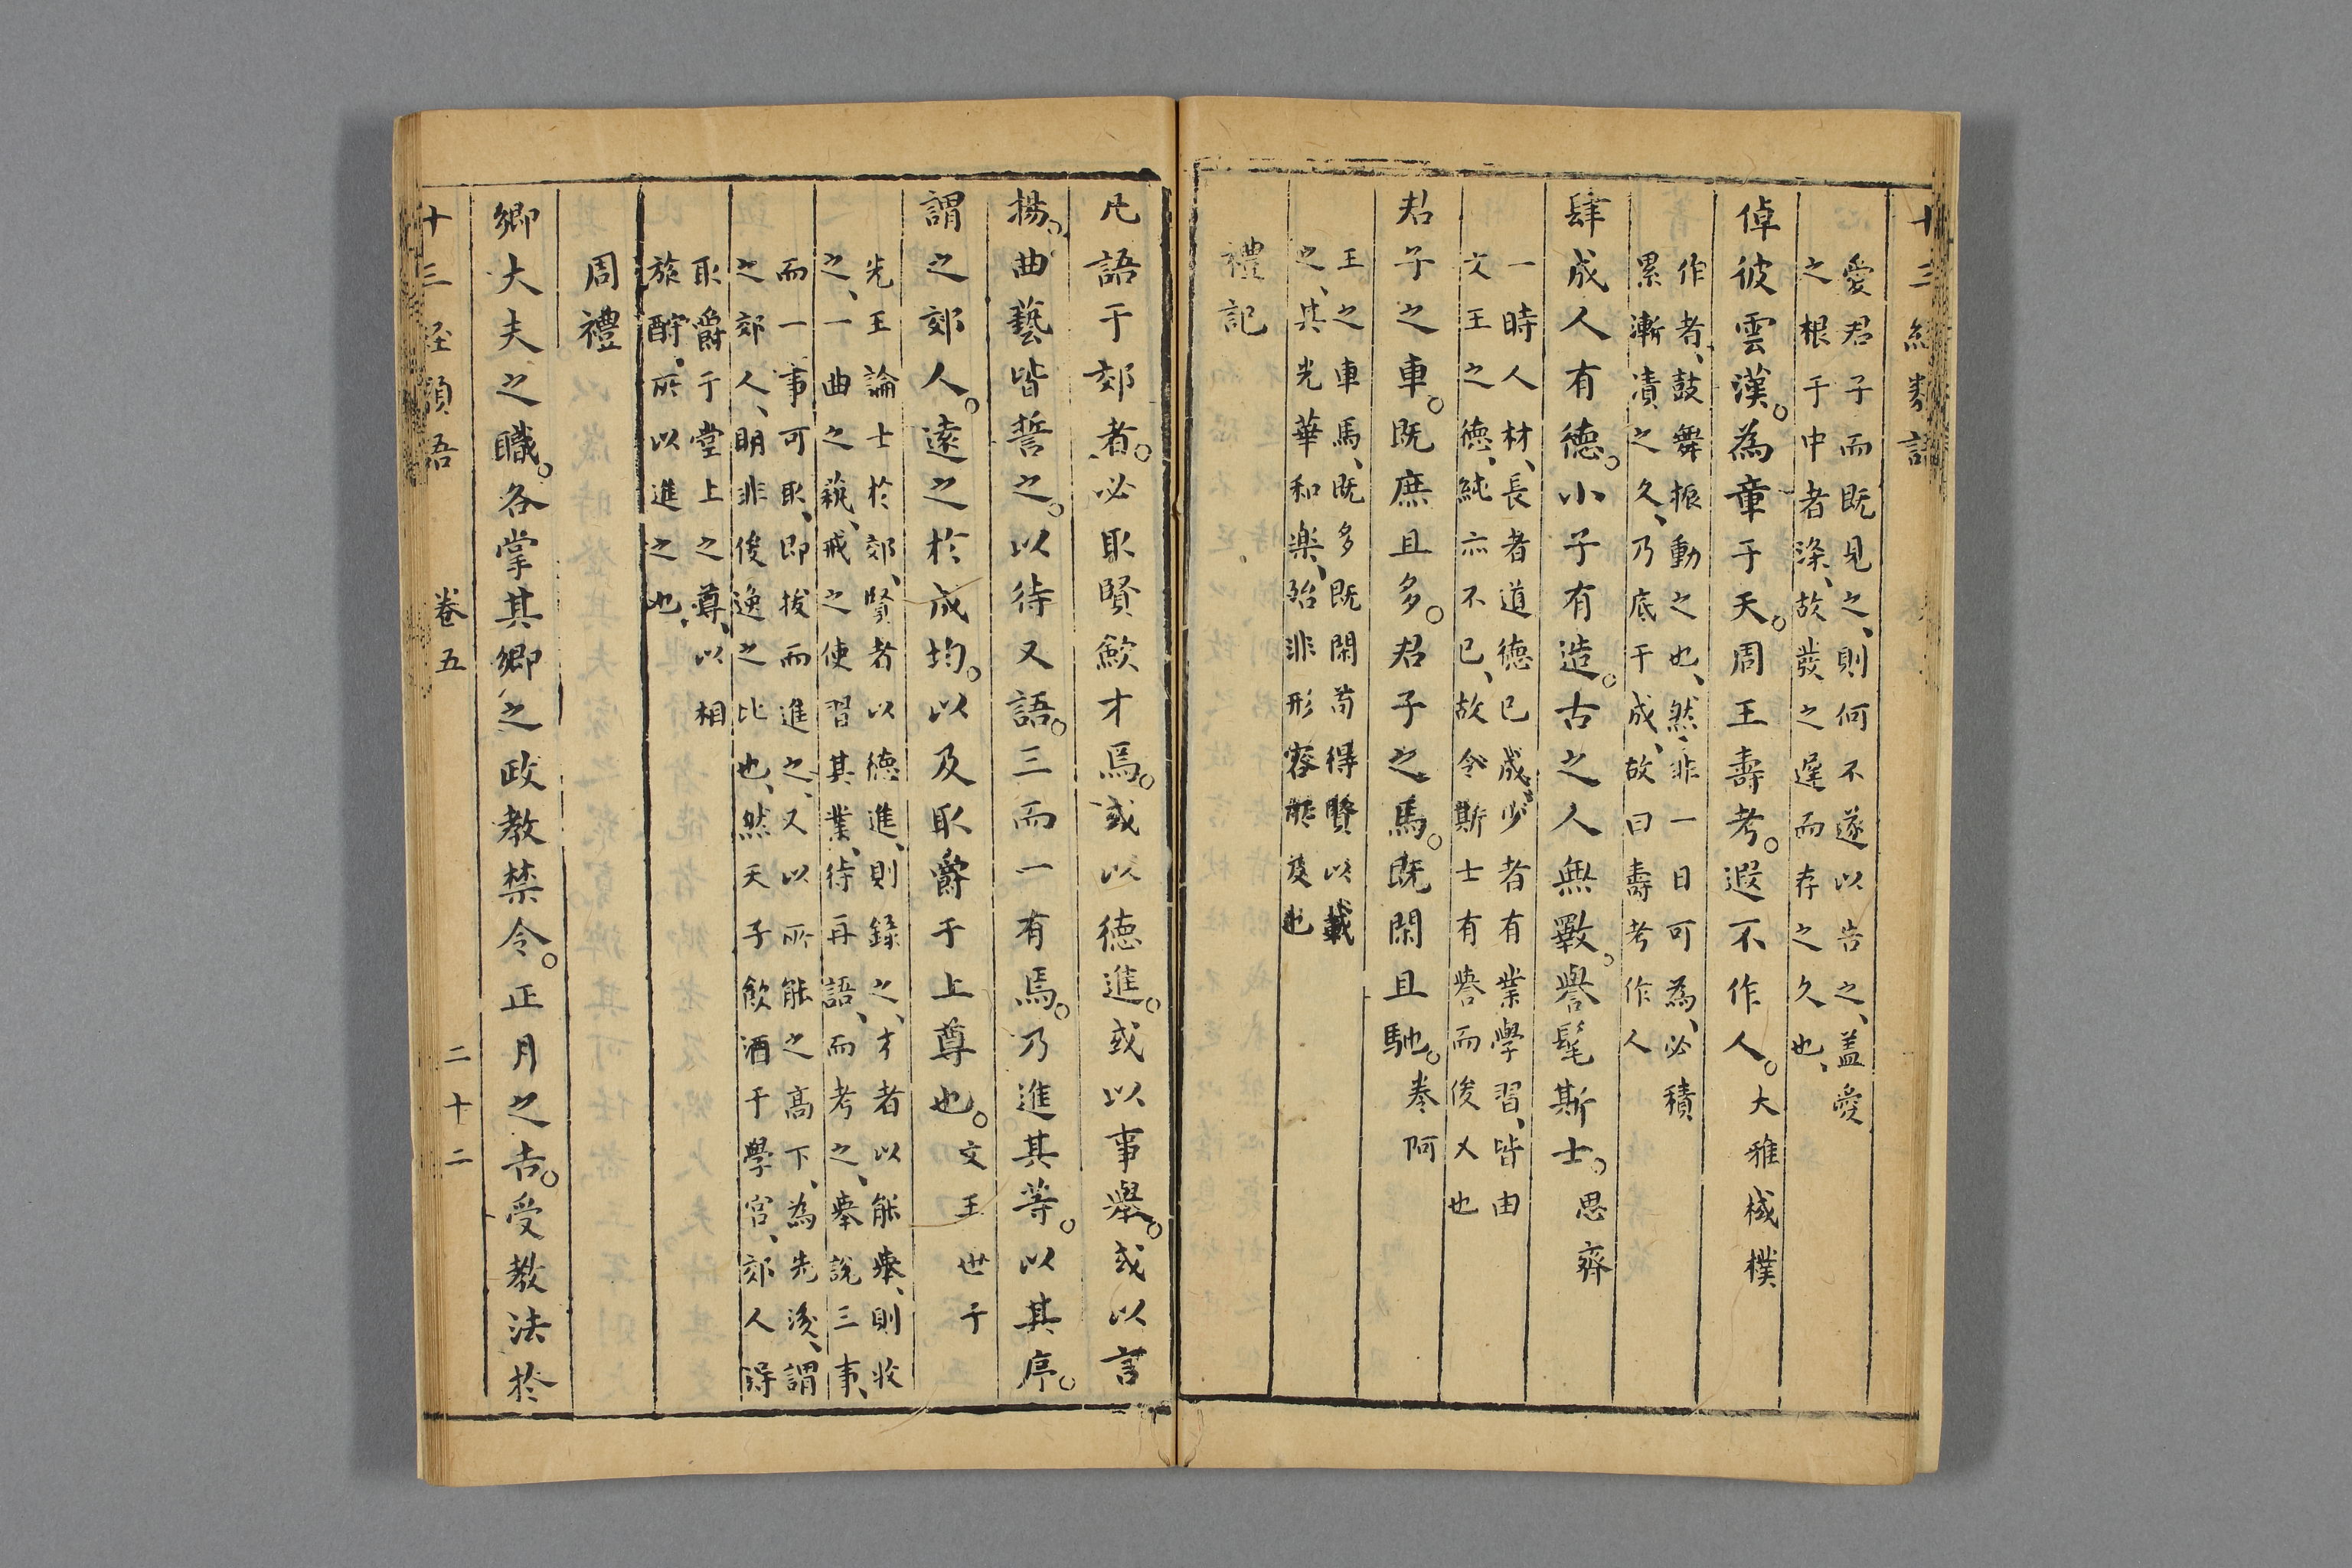 十三經類語
愛君子而既見之、則何不遂以告之、盖愛
之根于中者深、故發之遲而存之久也、
倬彼雲漢。為章于天。周王壽考。遐不作人。大雅棫樸
作者、鼓舞振動之也、然非一日可為、必積
累漸漬之久、乃底于成、故曰壽考作人
肆成人有德。小子有造。古之人無斁。譽髦斯士。思齊
一時人材、長者道德已成、少者有業學習、皆由
文王之德、純亦不已、故令斯士有譽而俊乂也
君子之車。既庶且多。君子之馬。既閑且馳。卷阿
王之車馬、既多既閑苟得賢以載
之、其光華和樂、殆非形容能及也
禮記
凡語于郊者。必取賢斂才焉。或以德進。或以事舉。或以言
揚。曲藝皆誓之。以待又語。三而一有焉。乃進其等。以其序。
謂之郊人。遠之於成均。以及取爵于上尊也。文王世子
先王論士於郊、賢者以德進、則錄之、才者以能舉、則收
之、一曲之藝、戒之使習其業、待再語、而考之、舉說三事、
而一事可取、即拔而進之、又以所能之高下、為先後、謂
之郊人、明非俊逸之比也、然天子飲酒于學宮、郊人得
取爵于堂上之尊、以相
旅酧、所以進之也、
周禮
鄉大夫之職。各掌其鄉之政教禁令。正月之吉。受教法於
十三經類語 卷五 二十二